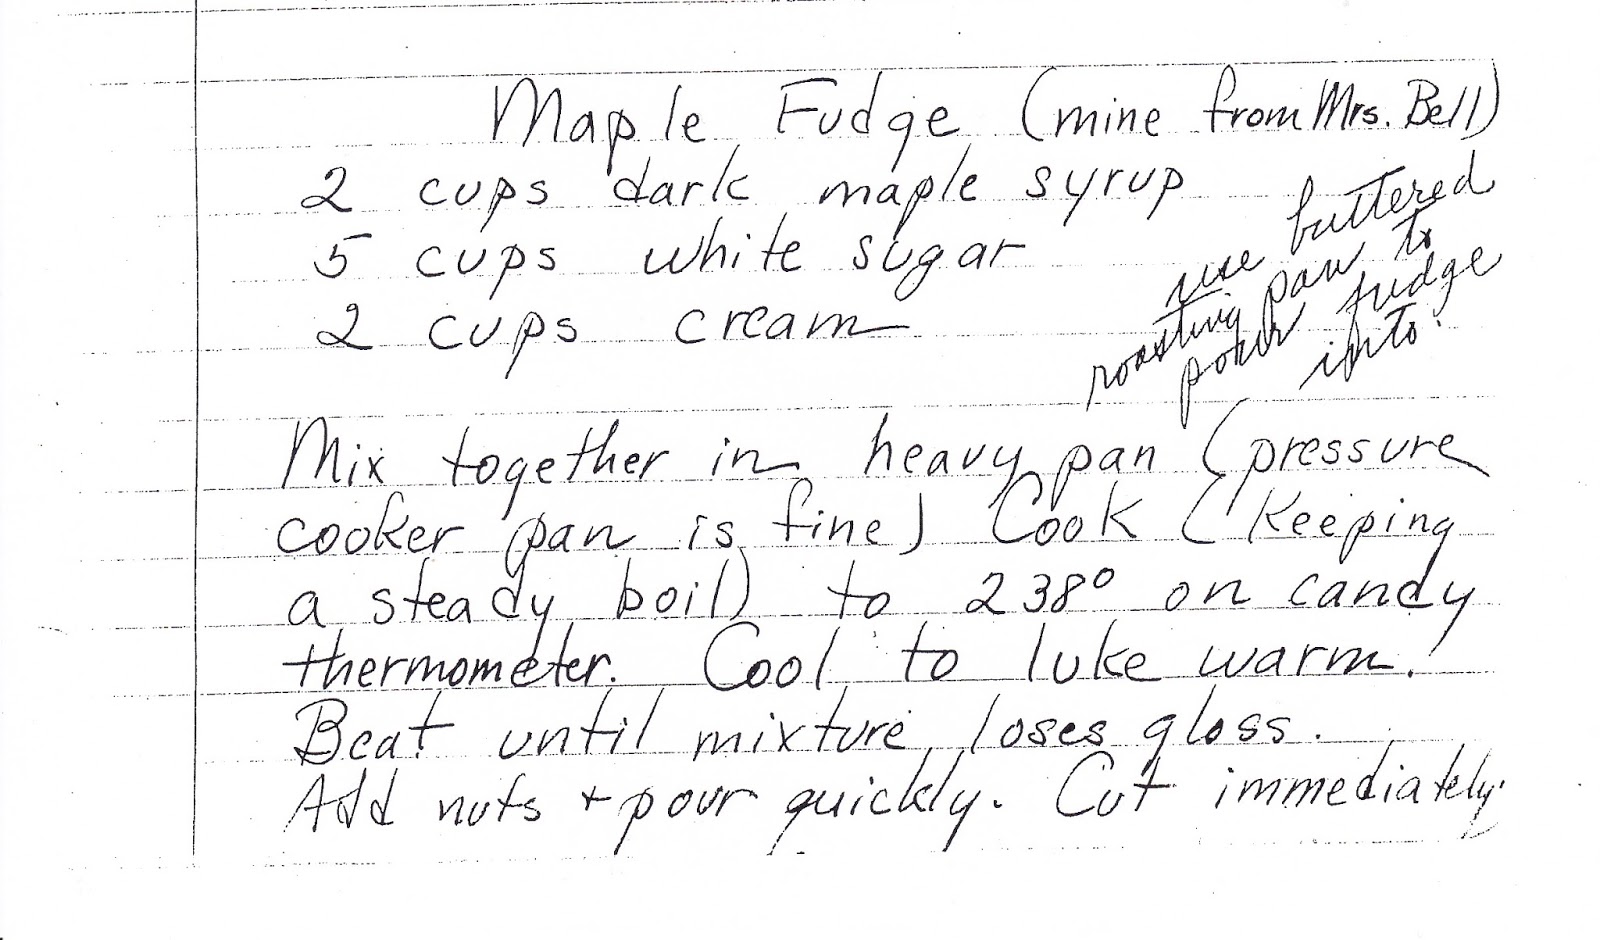 Maple Fudge (mine from Mrs. Bell)
2 cups dark maple syrup
5 cups white sugar
2 cups cream
use buttered
roasting pan to
pour fudge
into.
Mix together in heavy pan (pressure
cooker pan is fine) Cook (Keeping
a steady boil) to 238° on candy
thermometer. Cool to luke warm.
Beat until mixture loses gloss.
Add nuts + pour quickly. Cut immediately.